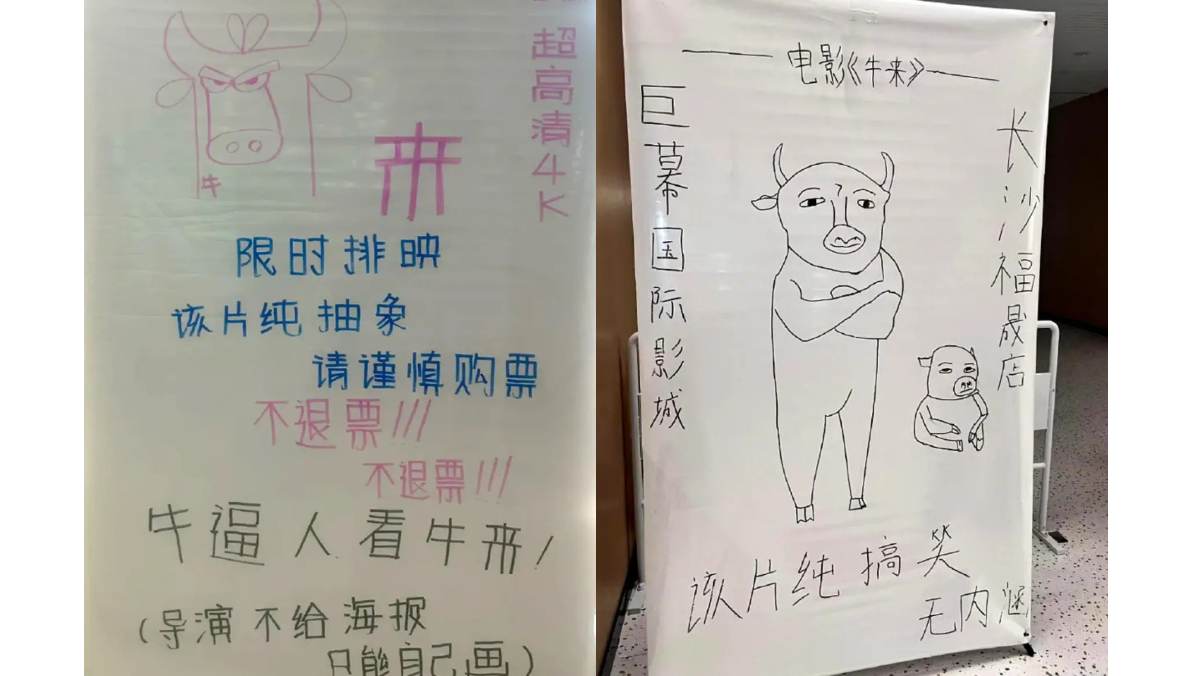 超高清4K
牛
来
限时排映
该片纯抽象
请谨慎购票
不退票!!!
不退票!!!
牛逼人看牛来!
(导演不给海报
只能自己画)
电影《牛来》
巨幕国际影城
长沙福晟店
该片纯搞笑
无内涵